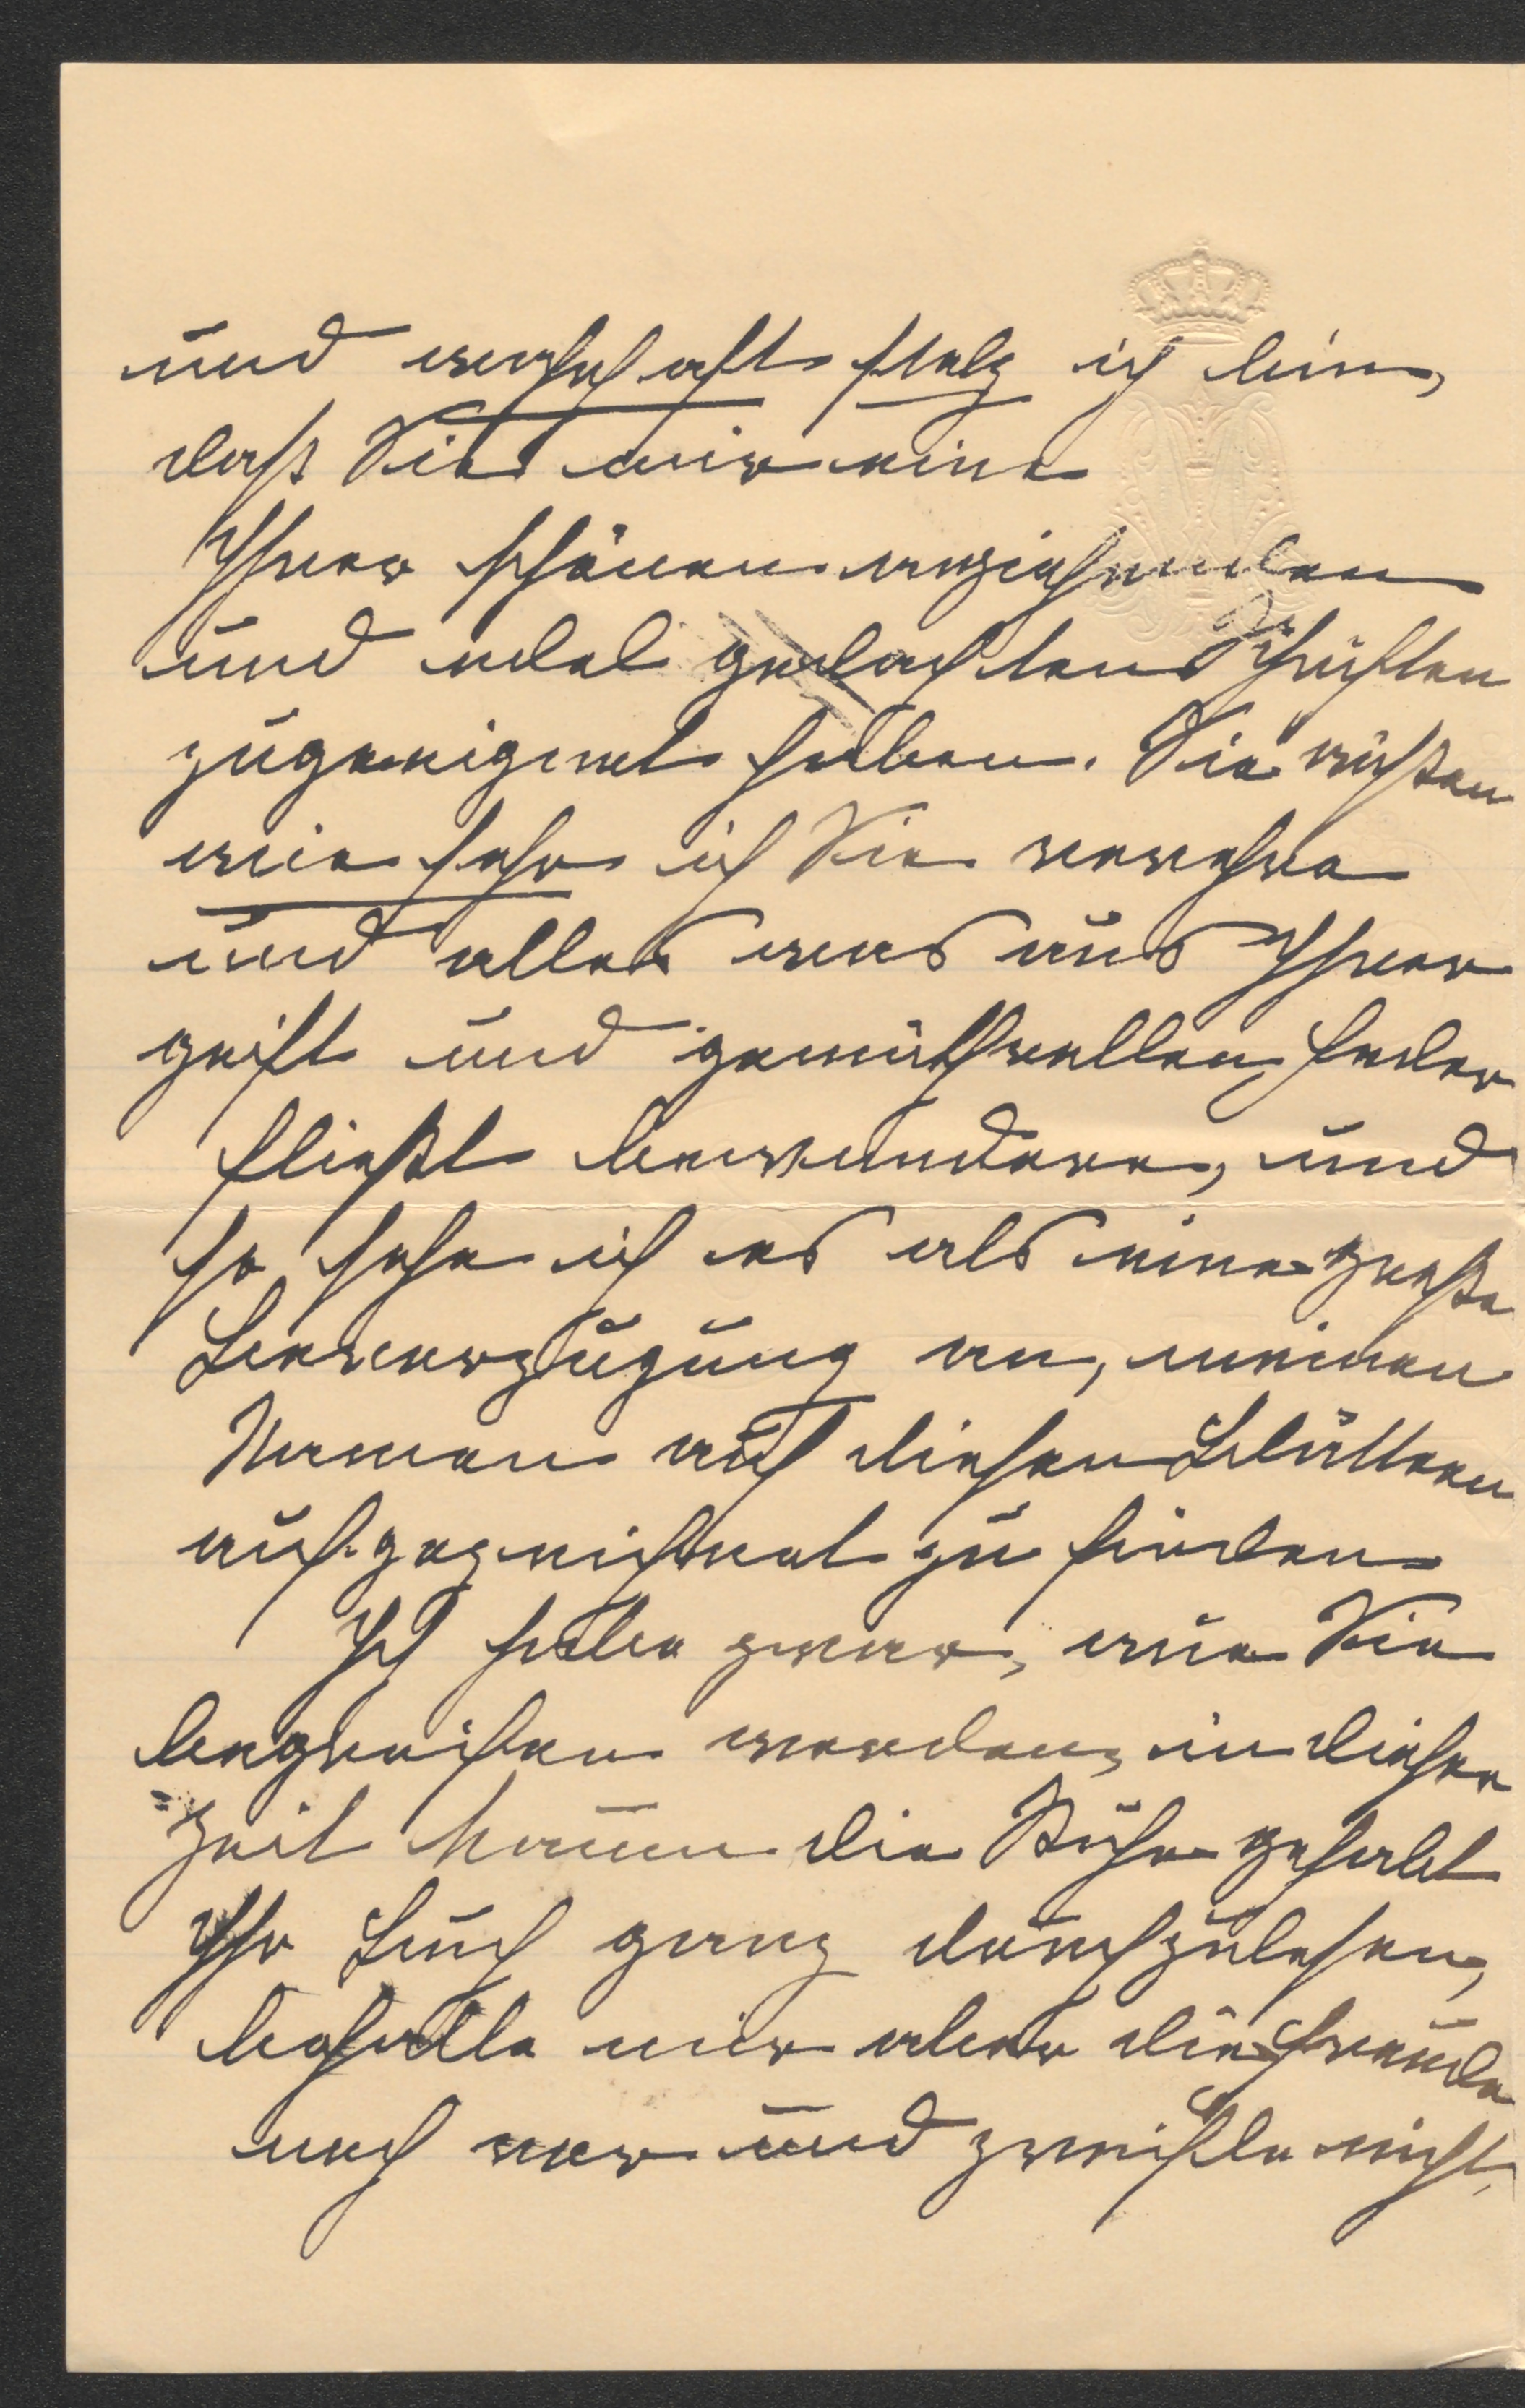 und wahrhaft stolz ich bin,
daß Sie mir eine
Ihrer schönen anziehenden
und edel gedachten Schriften
zugeeignet haben. Sie wißen
wie sehr ich Sie verehre
und alles was aus Ihrer
geist und gemüthvollen Feder
fließt bewundere, und
so sehe ich es als eine große
Bevorzugung an, meinen
Namen auf diesen Blättern
aufgezeichnet zu finden
Ich habe zwar, wie Sie
begreifen werden, in dieser
Zeit kaum die Ruhe gehabt
Ihr Buch ganz durchzulesen,
behalte mir aber die Freude
noch vor und zweifle nicht,